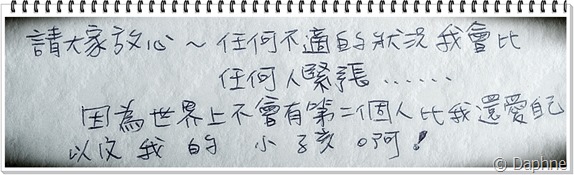 請大家放心～任何不適的狀況我會比
任何人緊張......
因為世界上不會有第二個人比我還愛自己
以及我的小孩啊!
© Daphne